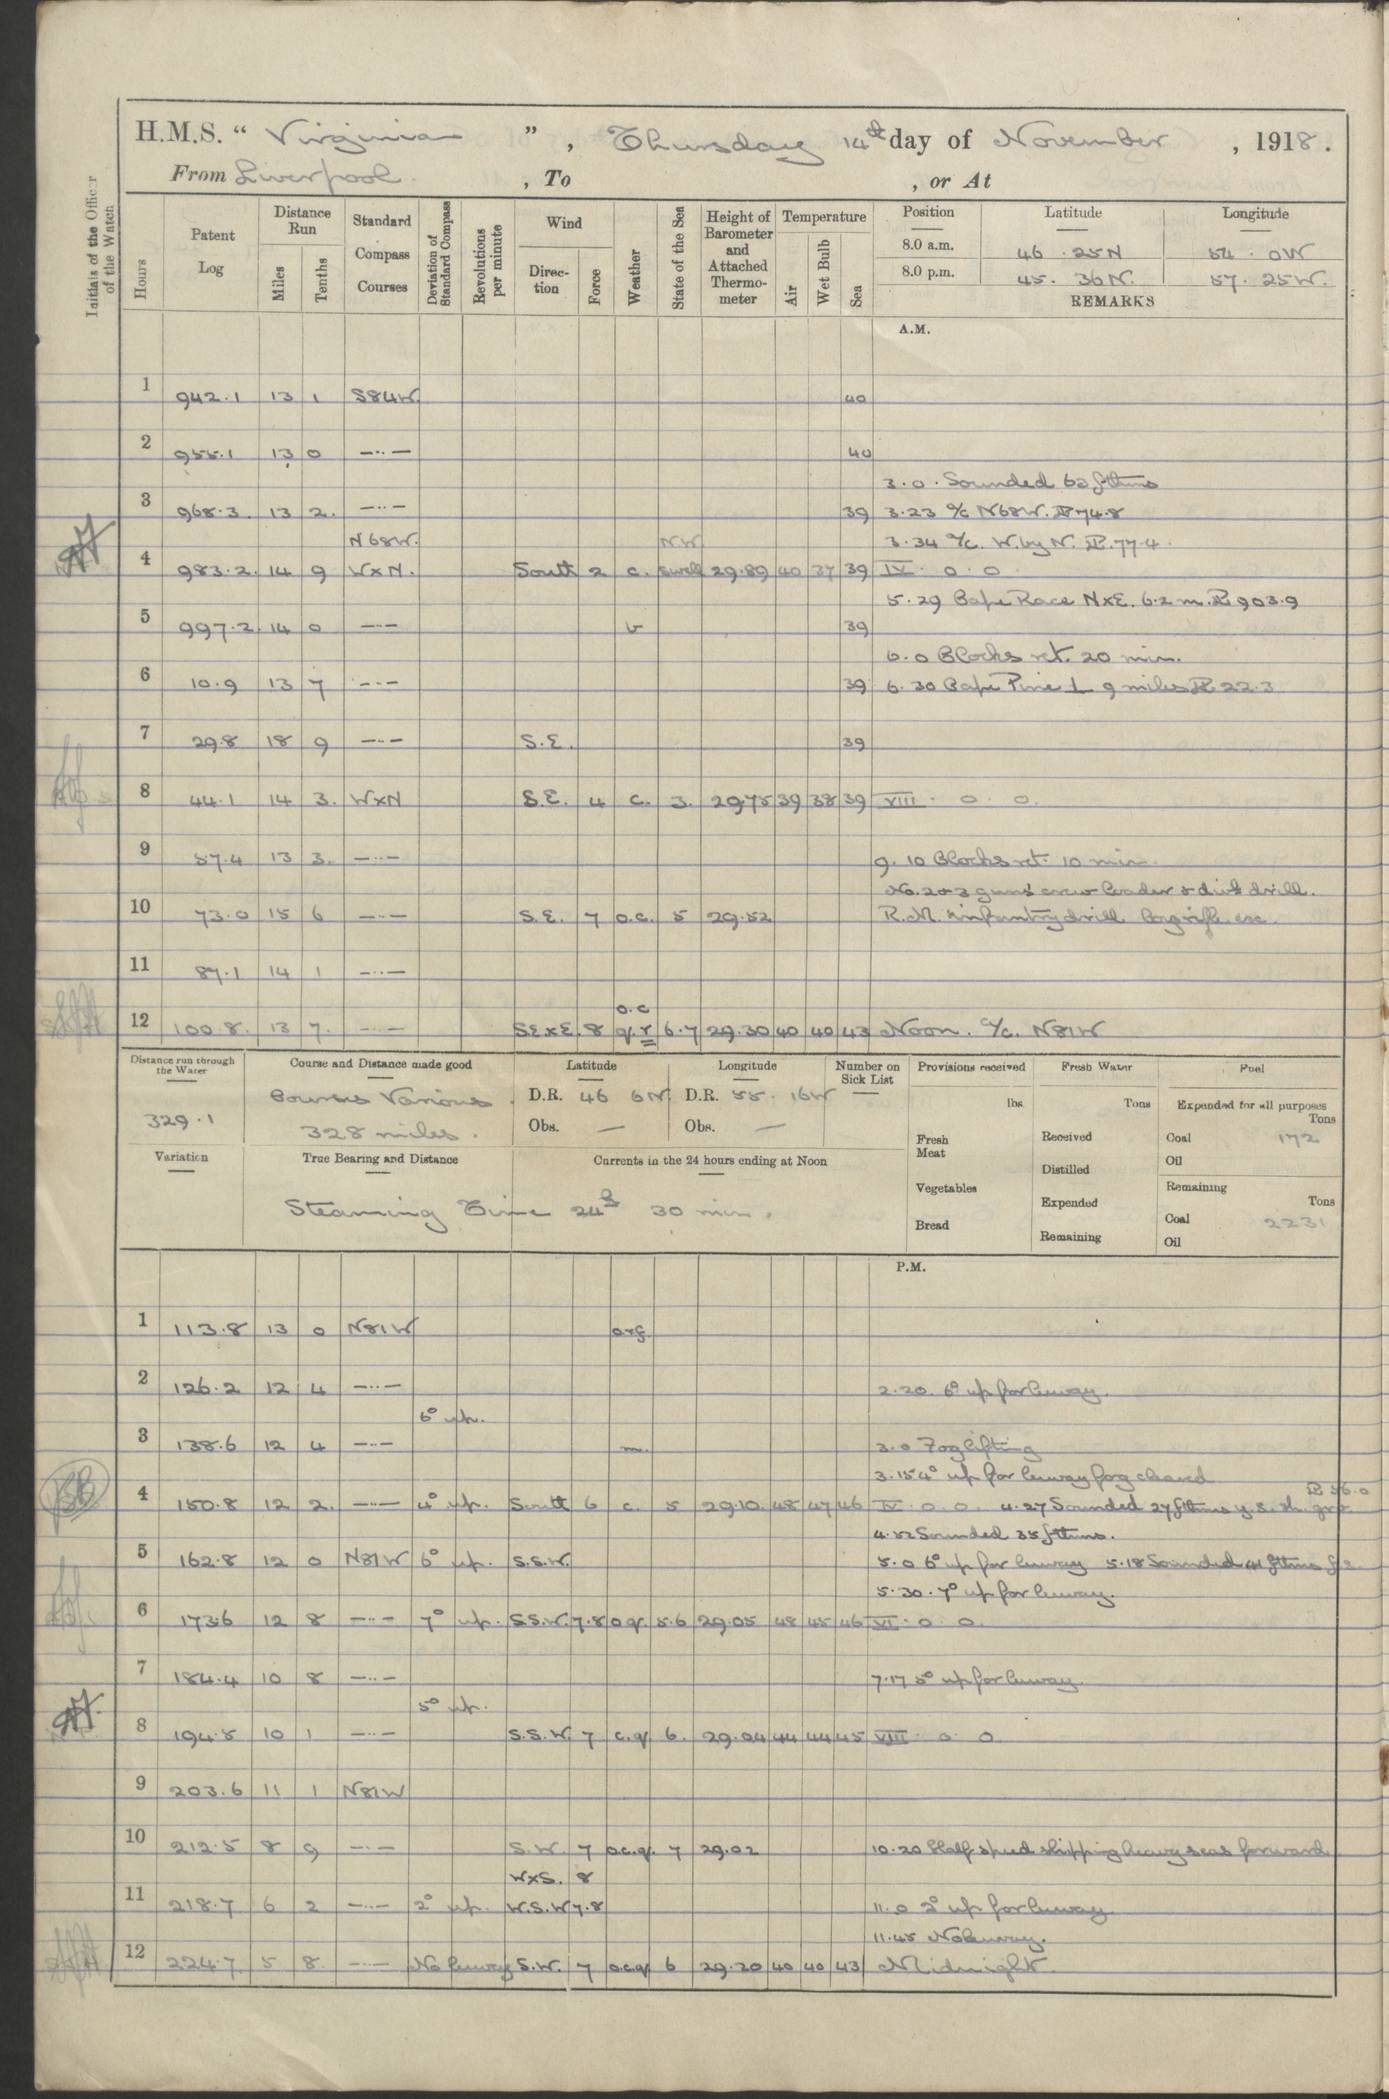 H.M.S. " Virginian " , Thursday 14th day of November , 1918 .
From Liverpool , To , or At
Initials of the Officer of the Watch
Hours
Patent Log
Distance Run
Miles
Tenths
Standard Compass Courses
Deviation of Standard Compass
Revolutions per minute
Wind
Direction
Force
Weather
State of the Sea
Height of Barometer and Attached Thermometer
Temperature
Air
Wet Bulb
Sea
Position Latitude Longitude
8.0 a.m. 46 . 25N 54 . 0W
8.0 p.m. 45 . 36N. 57 . 25W.
REMARKS
A.M.
1 942.1 13 1 S84W 40
2 955.1 13 0 —··— 40
3.0. Sounded 62 fthms
3 968.3 13 2. —··— 39 3.23 a/c N68W. PL 74.8
N68W. N.W. 3.34 a/c. W. by N. PL. 77.4
4 983.2. 14 9 WxN. South 2 c. swell 29.89 40 37 39 IV. 0. 0
5.29 Cape Race NxE. 6.2 m. PL 903.9
5 997.2. 14 0 —·— 39
6.0 Clocks ret. 20 min.
6 10.9 13 7 —·— 39 6.30 Cape Pine ⊥ 9 miles PL 22.3
7 29.8 18 9 —·— S.E. 39
8 44.1 14 3. WxN S.E. 4 c. 3. 29.75 39 38 39 VIII. 0. 0.
9 57.4 13 3. —··— 9.10 Clocks ret. 10 min.
No. 2 & 3 guns crew loader & drill.
10 73.0 15 6 —··— S.E. 7 o.c. 5 29.52 R.M. infantry drill
11 87.1 14 1 —··—
o.c
12 100.8. 13 7. —·— S.E.xE. 8 q.r 6.7 29.30 40 40 43 Noon. a/c. N81W
Distance run through the Water
329.1
Course and Distance made good
Courses Various
328 miles.
Latitude
D.R. 46 6N
Obs. —
Longitude
D.R. 55. 16W
Obs. —
Number on Sick List
—
Provisions received
lbs.
Fresh Meat
Vegetables
Bread
Fresh Water
Tons
Received
Distilled
Expended
Remaining
Fuel
Expended for all purposes
Tons
Coal 172
Oil
Remaining
Tons
Coal 2231
Oil
Variation
True Bearing and Distance
Currents in the 24 hours ending at Noon
Steaming Time 24h 30 min.
P.M.
1 113.8 13 0 N81W
2 126.2 12 4 —··— 2.20. 6° up for leeway.
6° up.
3 138.6 12 4 —··— m. 3.0 Fog lifting
3.15 4° up for leeway fog cleared
PL 56.0
4 150.8 12 2. —·— 4° up. South 6 c. 5 29.10. 48 47 46 IV. 0. 0. 4.27 Sounded 27 fthms y.s. sh.
4.52 Sounded 35 fthms.
5 162.8 12 0 N81W 6° up. S.S.W. 5.0 6° up for leeway 5.18 Sounded 41 fthms
5.30. 7° up for leeway.
6 173.6 12 8 —··— 7° up. S.S.W. 7.8 o q. 5.6 29.05 48 45 46 VI. 0. 0.
7 184.4 10 8 —··— 7.17 5° up for leeway.
5° up.
8 194.5 10 1 —··— S.S.W. 7 c.q. 6. 29.04 44 44 45 VIII. 0. 0.
9 203.6 11 1 N81W
10 212.5 8 9 —·— S.W. 7 o.c.q. 7 29.02 10.20 Half speed shipping heavy seas forward
WxS. 8
11 218.7 6 2 —·— 2° up. W.S.W 7.8 11.0 2° up for leeway
11.45 No leeway.
12 224.7 5 8. —·— No leeway S.W. 7 o.c.q 6 29.20 40 40 43 Midnight.